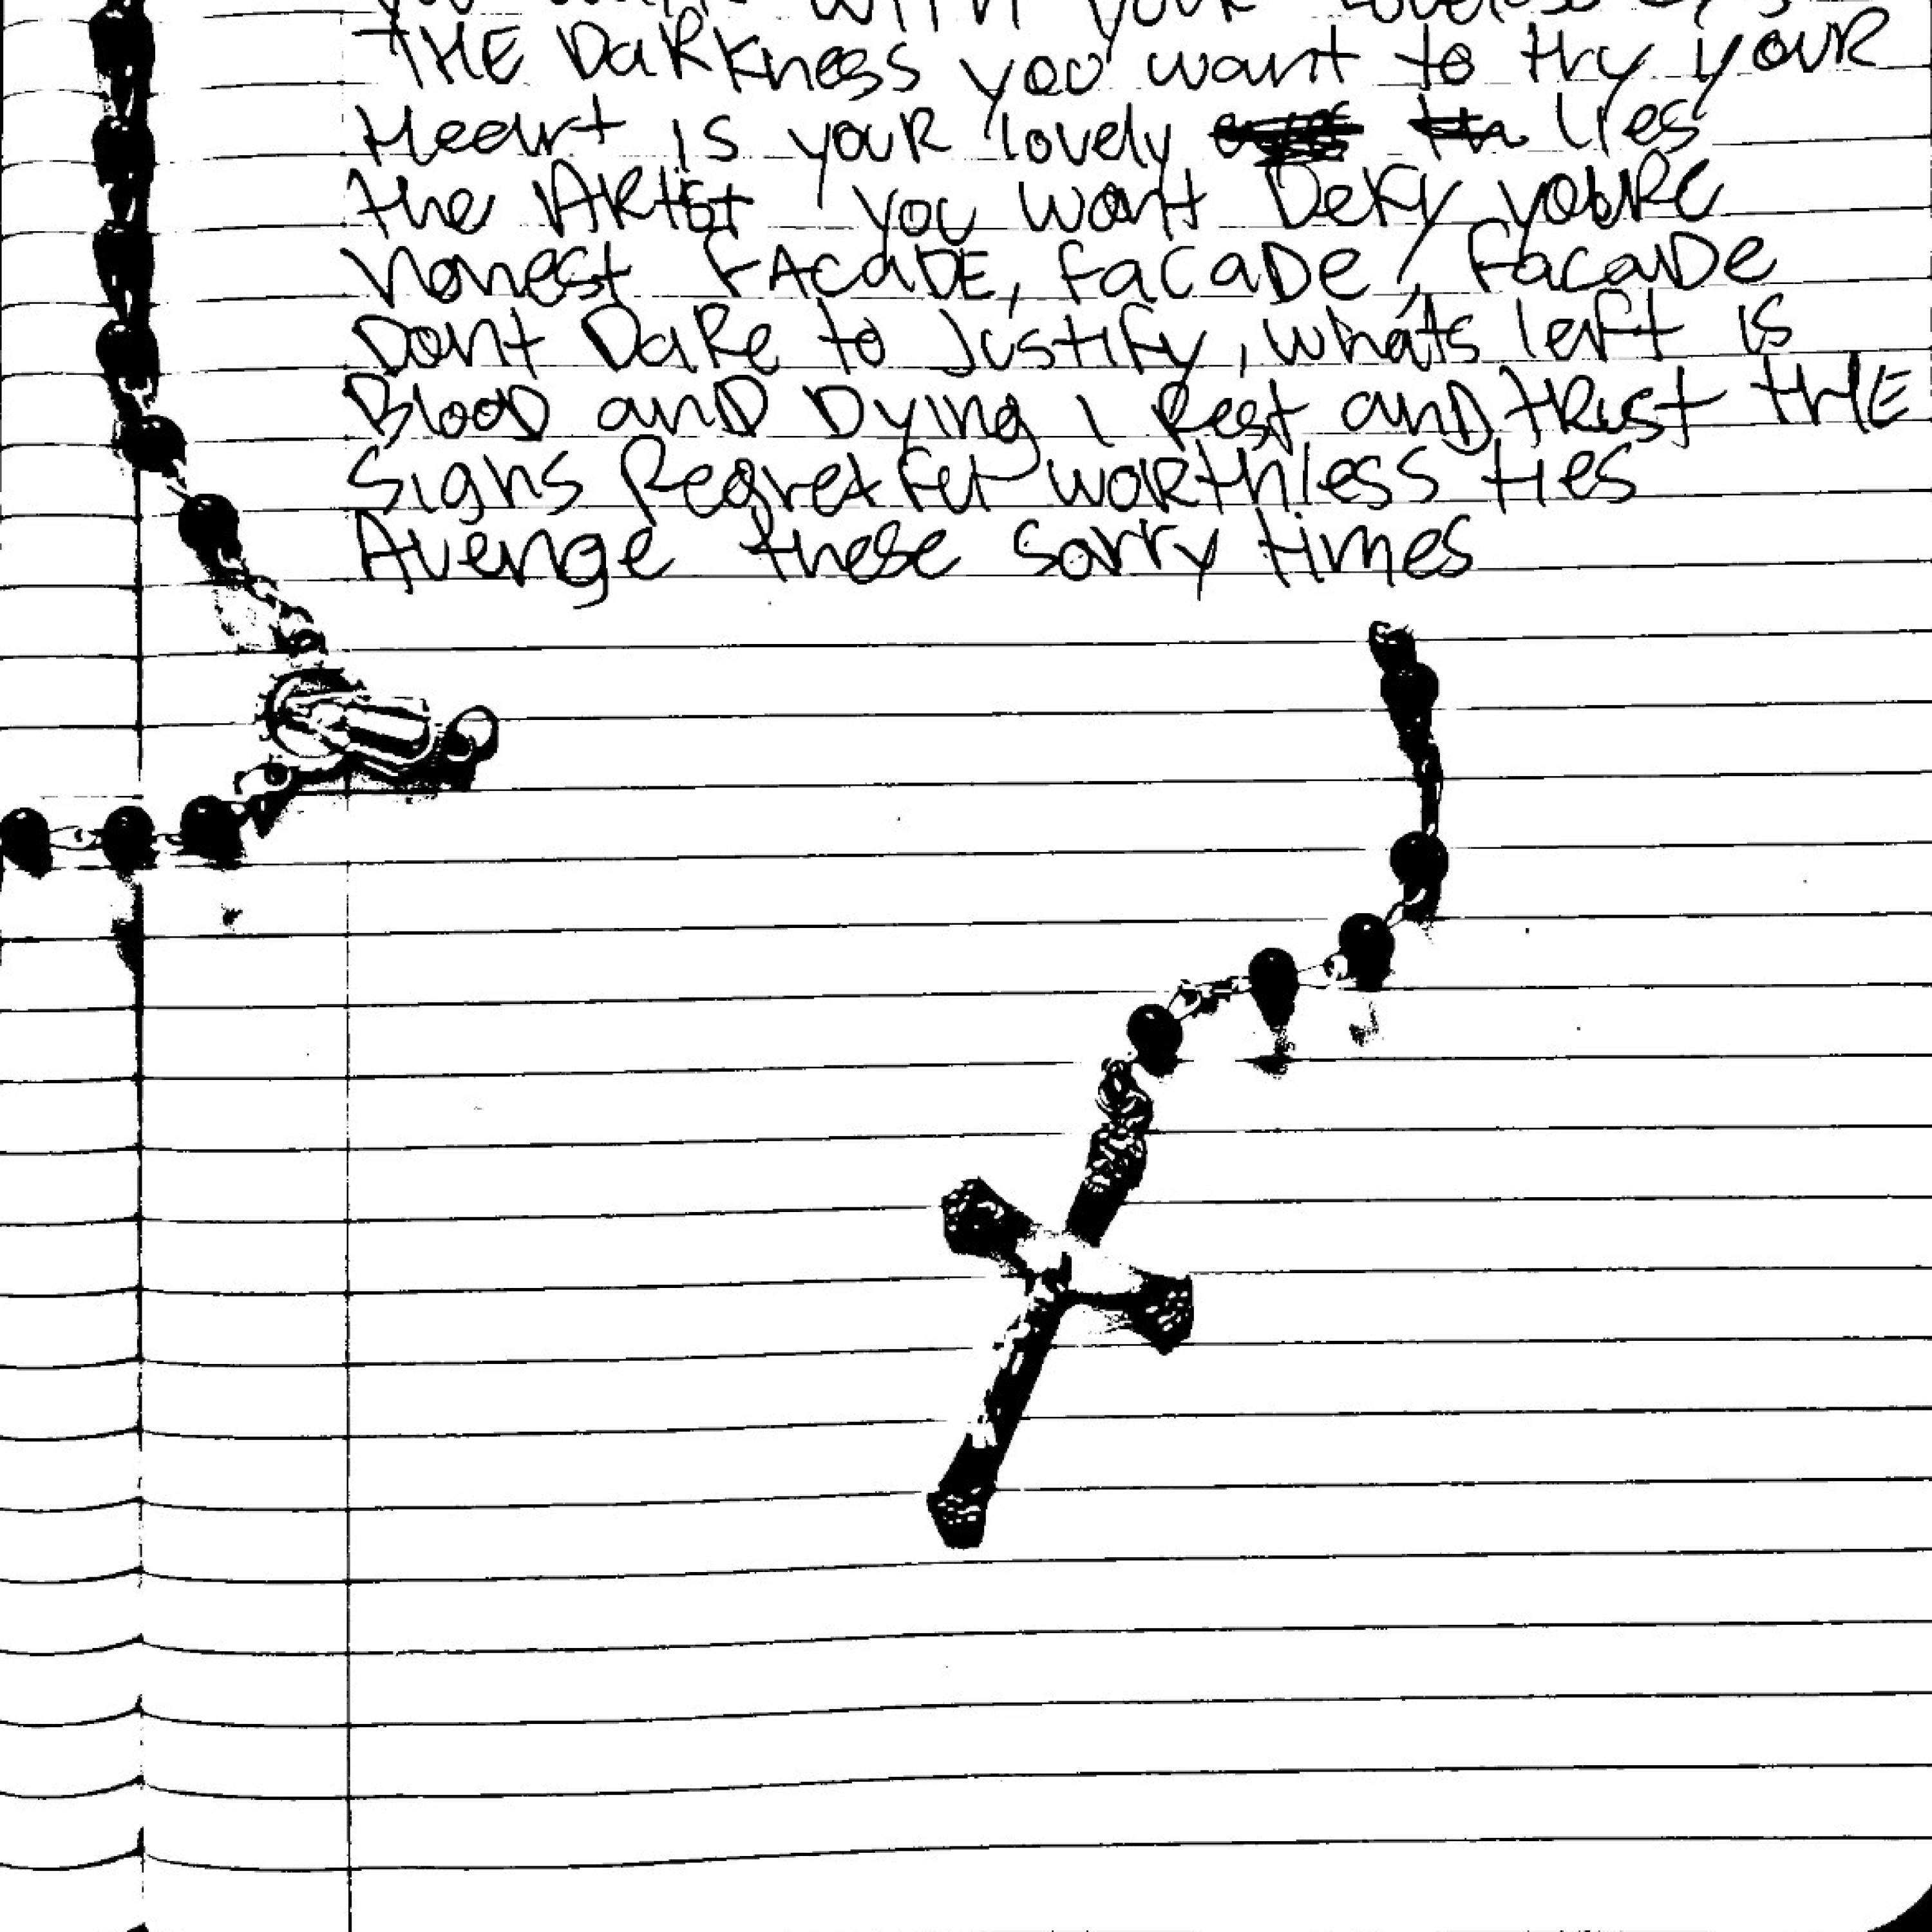 WITH YOUR
THE DaRKness you want to try your
Heart is your lovely lies
the ARtist you want Defy youre
honest FACaDE, FaCaDe, FacaDe
Dont DaRe to Justify, whats left is
BlooD anD Dying I Rest anD tRust tHE
Signs Regret Fet woRthless ties
Avenge these sorry times